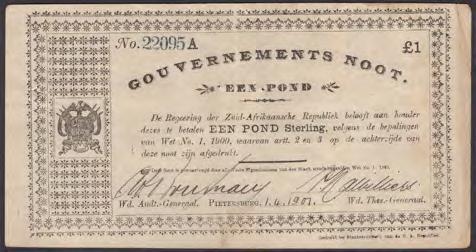 No. 22095 A
£1
GOUVERNEMENTS NOOT.
EEN POND
De Regeering der Zuid-Afrikaansche Republiek belooft aan houder
dezes te betalen EEN POND Sterling, volgens de bepalingen
van Wet No. 1, 1900, waarvan artt. 2 en 3 op de achterzijde van
deze noot zijn afgedrukt.
Wd. Audt.-Generaal. PIETERSBURG, 1.4.1901. Wd. Thes.-Generaal.